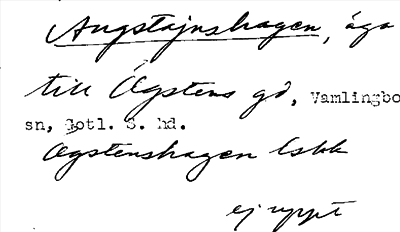 Angstajnshagen, äga
till Ägstens gd, Vamlingbo
sn, Gotl. S. hd.
Ägstenshagen Lskk
ej uppt